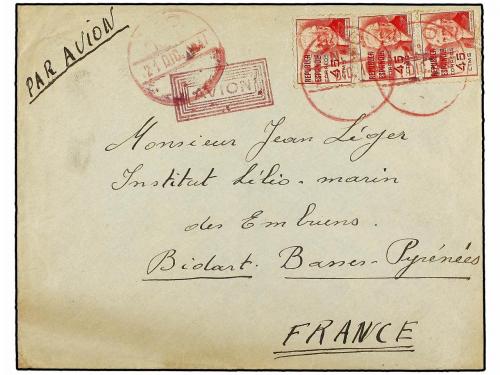 PAR AVION
21 DIC.
AVION
REPUBLICA ESPAÑOLA
CORREOS
45 CTMS
REPUBLICA ESPAÑOLA
CORREOS
45 CTMS
REPUBLICA ESPAÑOLA
CORREOS
45 CTMS
Monsieur Jean Léger
Institut Lélio-marin
des Embruns.
Bidart. Basses-Pyrénées
FRANCE